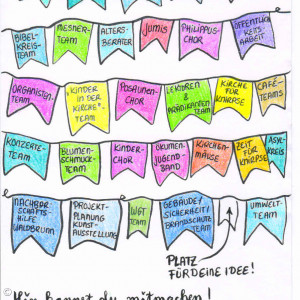 BIBEL-
KREIS-
TEAM
MESNER-
TEAM
ALTERS-
BERATER
JUMIS
PHILIPPUS-
CHOR
ÖFFENTLICH
KEITS-
ARBEIT
ORGANISTEN-
TEAM
„KINDER
IN DER
KIRCHE"-
TEAM
POSAUNEN-
CHOR
LEKTOREN
&
PRÄDIKANTEN-
TEAM
KIRCHE
FÜR
KNIRPSE
CAFÉ-
TEAMS
KONZERTE-
TEAM
BLUMEN-
SCHMUCK-
TEAM
KINDER-
CHOR
ÖKUMEN.
JUGEND-
BAND
KIRCHEN-
MÄUSE
ZEIT
FÜR
KNIRPSE
ASYL-
KREIS
NACHBAR
SCHAFTS-
HILFE
WALDBRUNN
PROJEKT-
PLANUNG
KUNST-
AUSSTELLUNG
WGT
TEAM
GEBÄUDE/
SICHERHEIT/
BRANDSCHUTZ-
TEAM
UMWELT-
TEAM
PLATZ
FÜR DEINE IDEE!
Hier kannst du mitmachen!